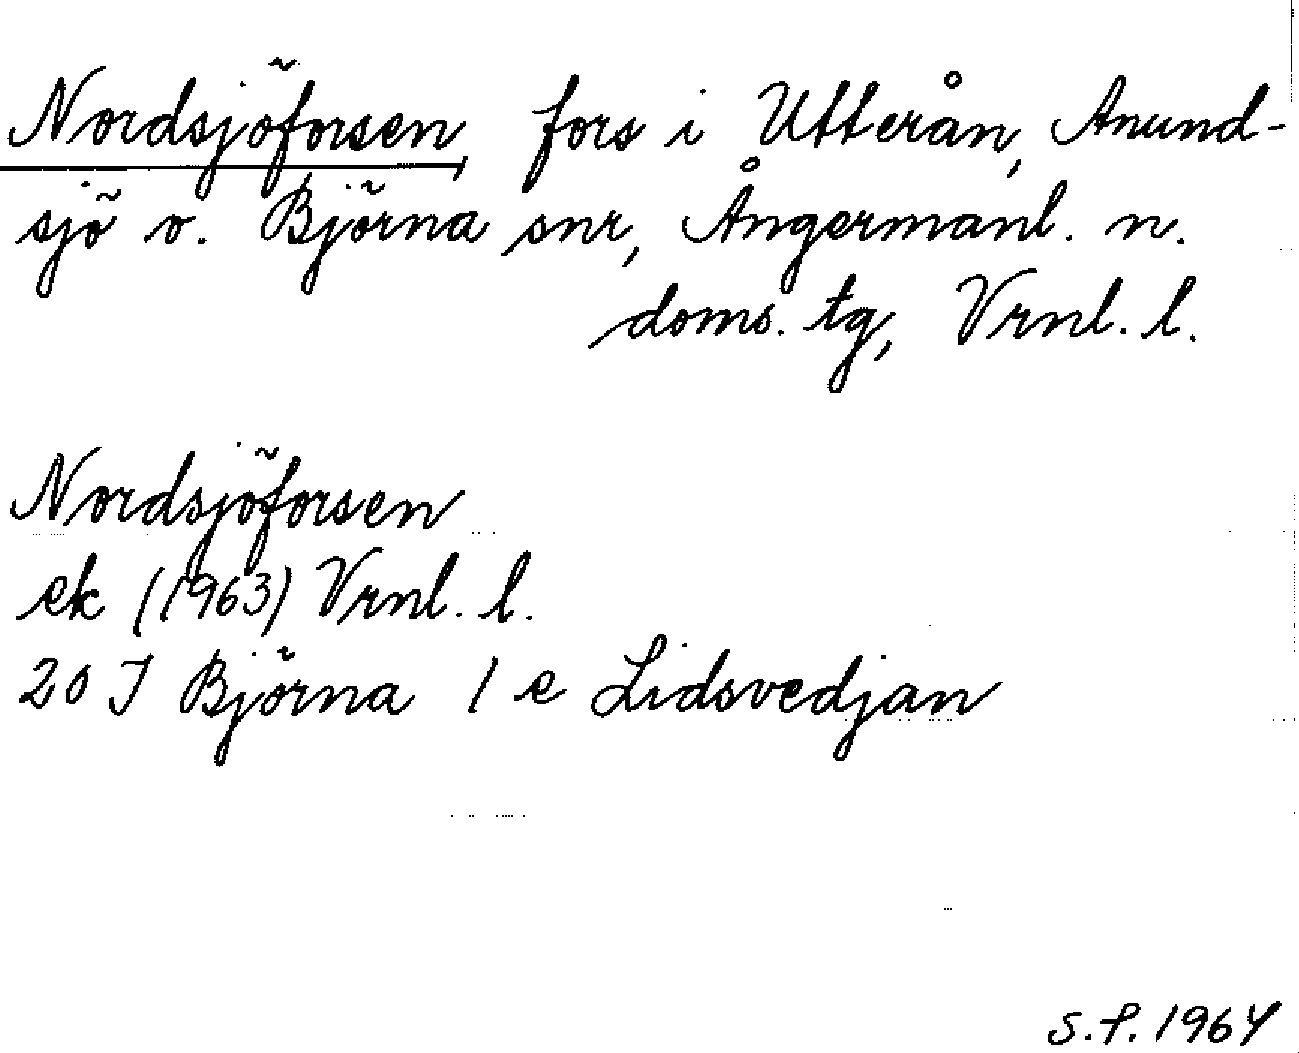 Nordsjöforsen, fors i Utterån, Anund-
sjö o. Björna snr, Ångermanl. n.
doms. tg, Vrnl. l.
Nordsjöforsen
ek (1963) Vrnl. l.
20 I Björna 1 e Lidsvedjan
S.P. 1964